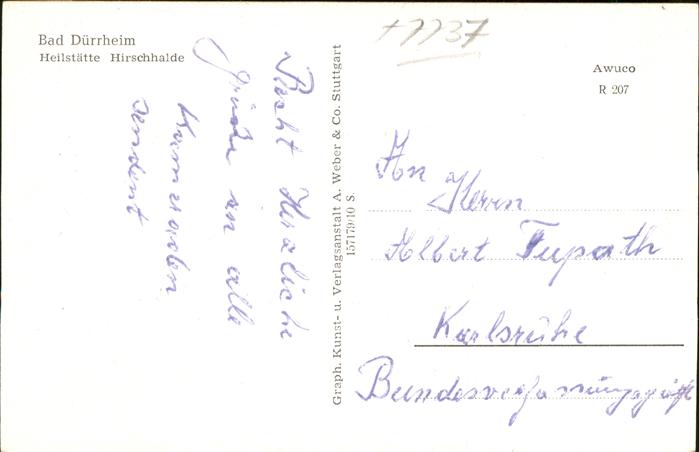 Bad Dürrheim
Heilstätte Hirschhalde
Recht Herzliche
Grüße an alle
Kameraden
sendent
Graph. Kunst- u. Verlagsanstalt A. Weber & Co. Stuttgart
157179/10 S.
+7737
Awuco
R 207
An Herrn
Albert Tupath
Karlsruhe